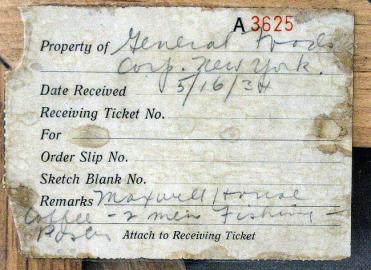 A 3625
Property of General Foods
Corp. New York.
Date Received 5/16/34
Receiving Ticket No.
For
Order Slip No.
Sketch Blank No.
Remarks Maxwell House
Coffee - 2 men Fishing -
Poster Attach to Receiving Ticket